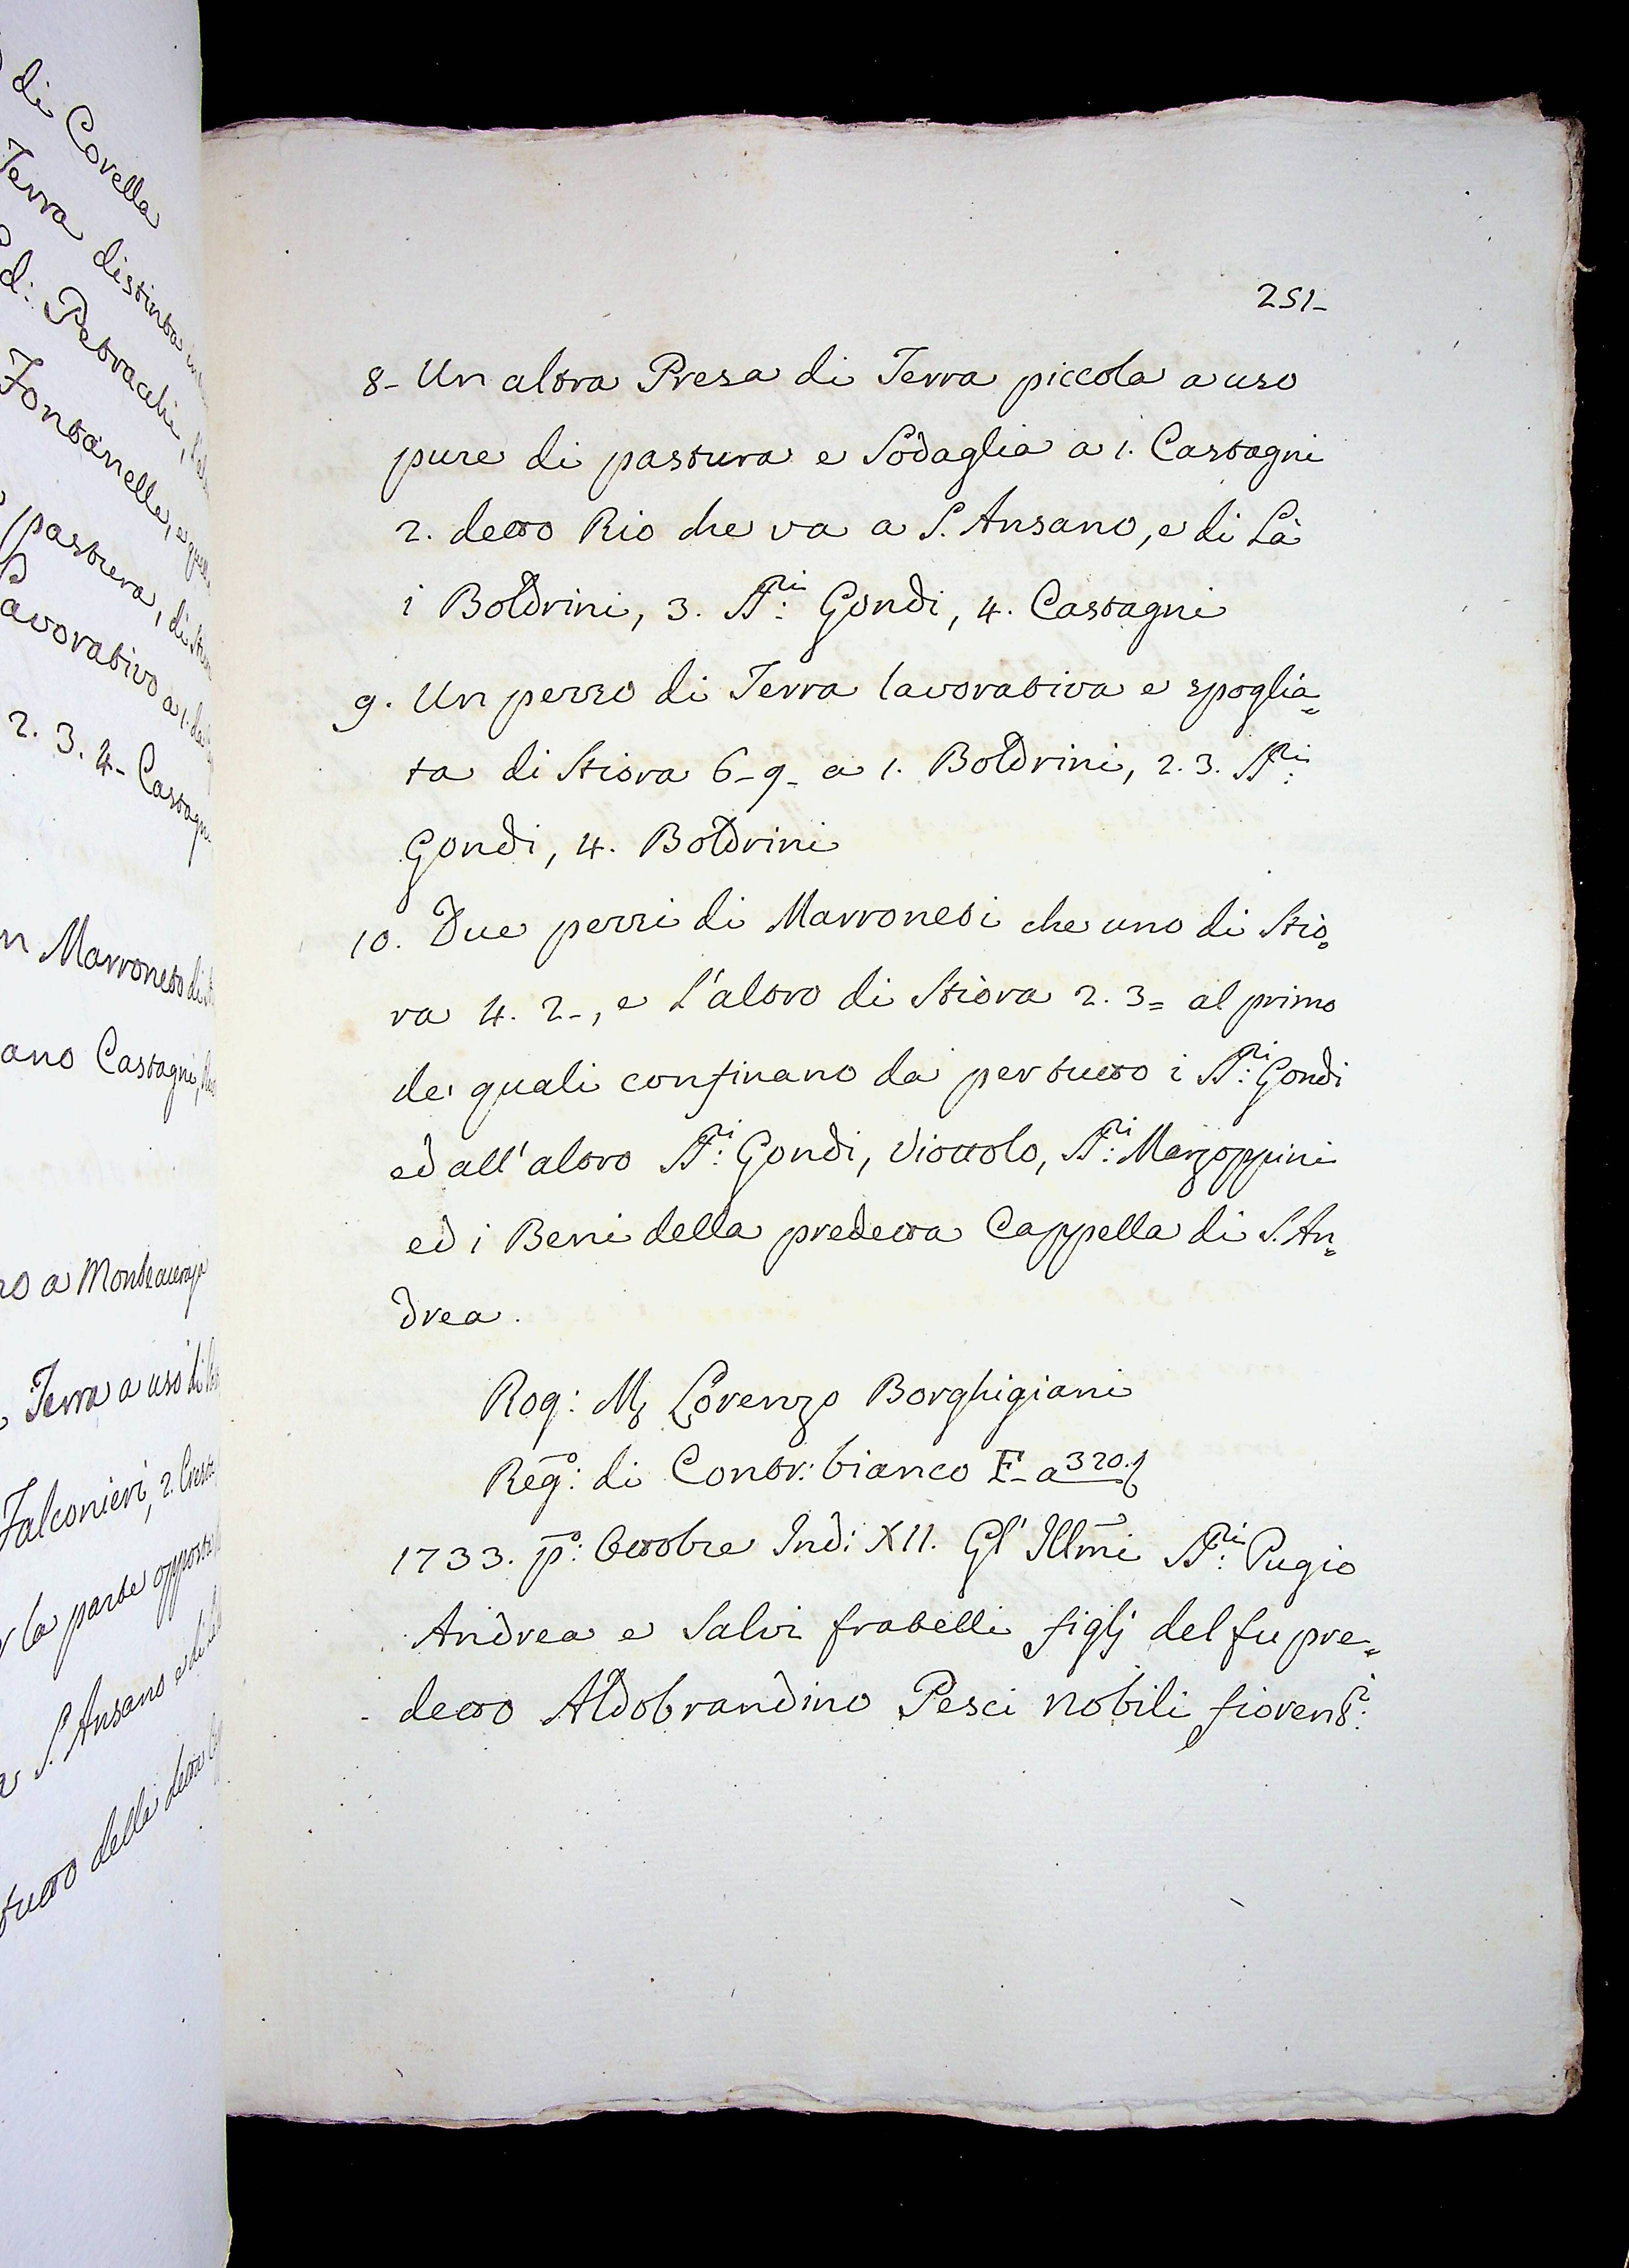 di Covella
Terra distinta
d: Petracchi,
Fontanelle, e quelle
pastura, di
Lavorativo a 1.
2. 3. 4- Castagn
n Marroneto di
ano Castagni,
no a Monteaceraja
Terra a uso di
Falconieri, 2.
r la parte opposta
a S. Ansano e di
tutto della detta
251-
8- Un altra Presa di Terra piccola a uso
pure di pastura e Sodaglia a 1. Castagni
2. detto Rio che va a S. Ansano, e di Là
i Boldrini, 3. SS:ri Gondi, 4. Castagni
9. Un pezzo di Terra lavorativa e spoglia=
ta di Stiora 6-9- a 1. Boldrini, 2. 3. SS:ri
Gondi, 4. Boldrini
10. Due pezzi di Marroneti che uno di Stio=
ra 4. 2-, e l'altro di Stiora 2. 3= al primo
de' quali confinano da per tutto i SS:ri Gondi
ed all' altro SS:ri Gondi, Viottolo, SS:ri Marzoppini
ed i Beni della predetta Cappella di S. An=
drea.
Rog: M. Lorenzo Borghigiani
Reg:o di Contr: bianco F- a 320.
1733. p:o Ottobre Ind: XII. Gl' Illmi SS:ri Pugio
Andrea e Salvi fratelli figlj del fu pre=
detto Aldobrandino Pesci nobili fiorent:i